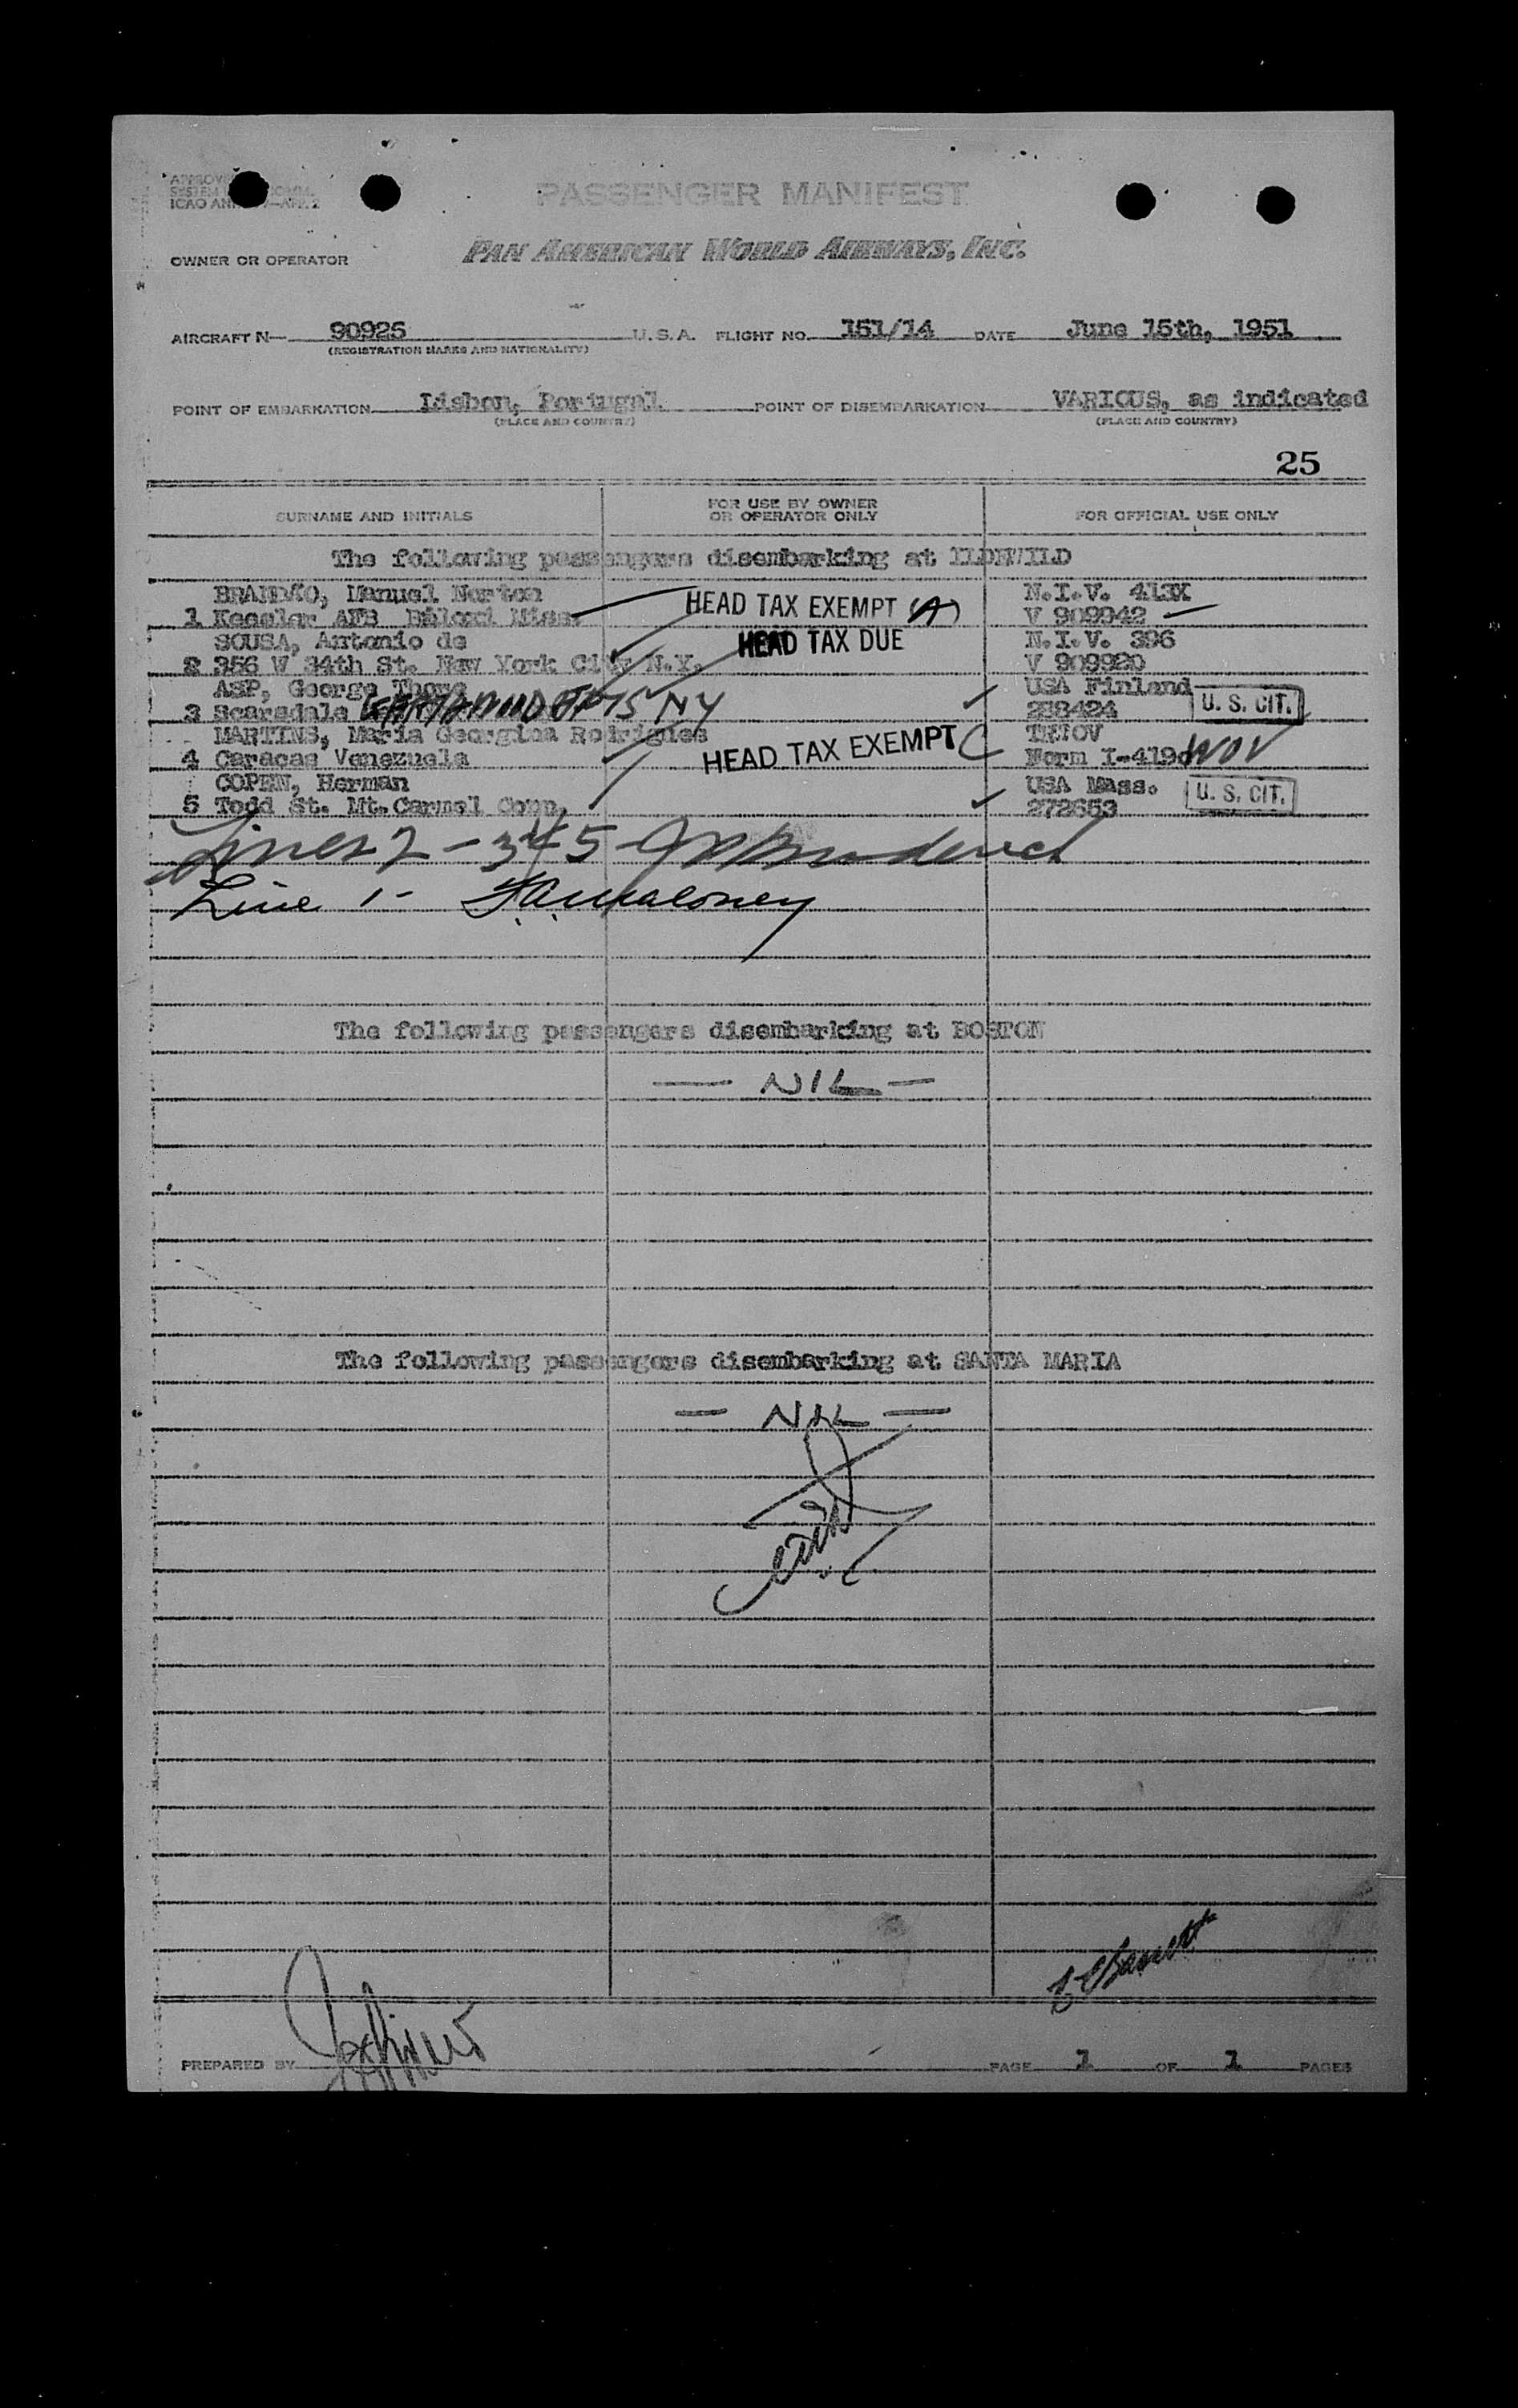 PASSENGER MANIFEST
OWNER OR OPERATOR PAN AMERICAN WORLD AIRWAYS, INC.
AIRCRAFT N— 90926 U.S.A. FLIGHT NO. 151/14 DATE June 15th, 1951
(REGISTRATION MARKS AND NATIONALITY)
POINT OF EMBARKATION Lisbon, Portugal POINT OF DISEMBARKATION VARIOUS, as indicated
(PLACE AND COUNTRY) (PLACE AND COUNTRY)
25
SURNAME AND INITIALS FOR USE BY OWNER OR OPERATOR ONLY FOR OFFICIAL USE ONLY
The following passengers disembarking at IDLEWILD
BRANDÃO, Manuel Norton N.I.V. 413X
1 Keesler AFB Biloxi Miss. HEAD TAX EXEMPT (A) V 909942
SOUSA, Antonio de HEAD TAX DUE N.I.V. 396
2 356 W 34th St. New York City N.Y. V 909920
ASP, George USA Finland
3 Scarsdale NY 288424 U. S. CIT.
MARTINS, Maria Georgina Rodrigues TRTOV
4 Caracas Venezuela HEAD TAX EXEMPT C Form I-419c WOV
COPEN, Herman USA Mass.
5 Todd St. Mt.Carmel Conn. 272653 U. S. CIT.
Lines 2-3 4 5
Line 1- Maloney
The following passengers disembarking at BOSTON
— NIL —
The following passengers disembarking at SANTA MARIA
— NIL —
PREPARED BY PAGE 1 OF 1 PAGES